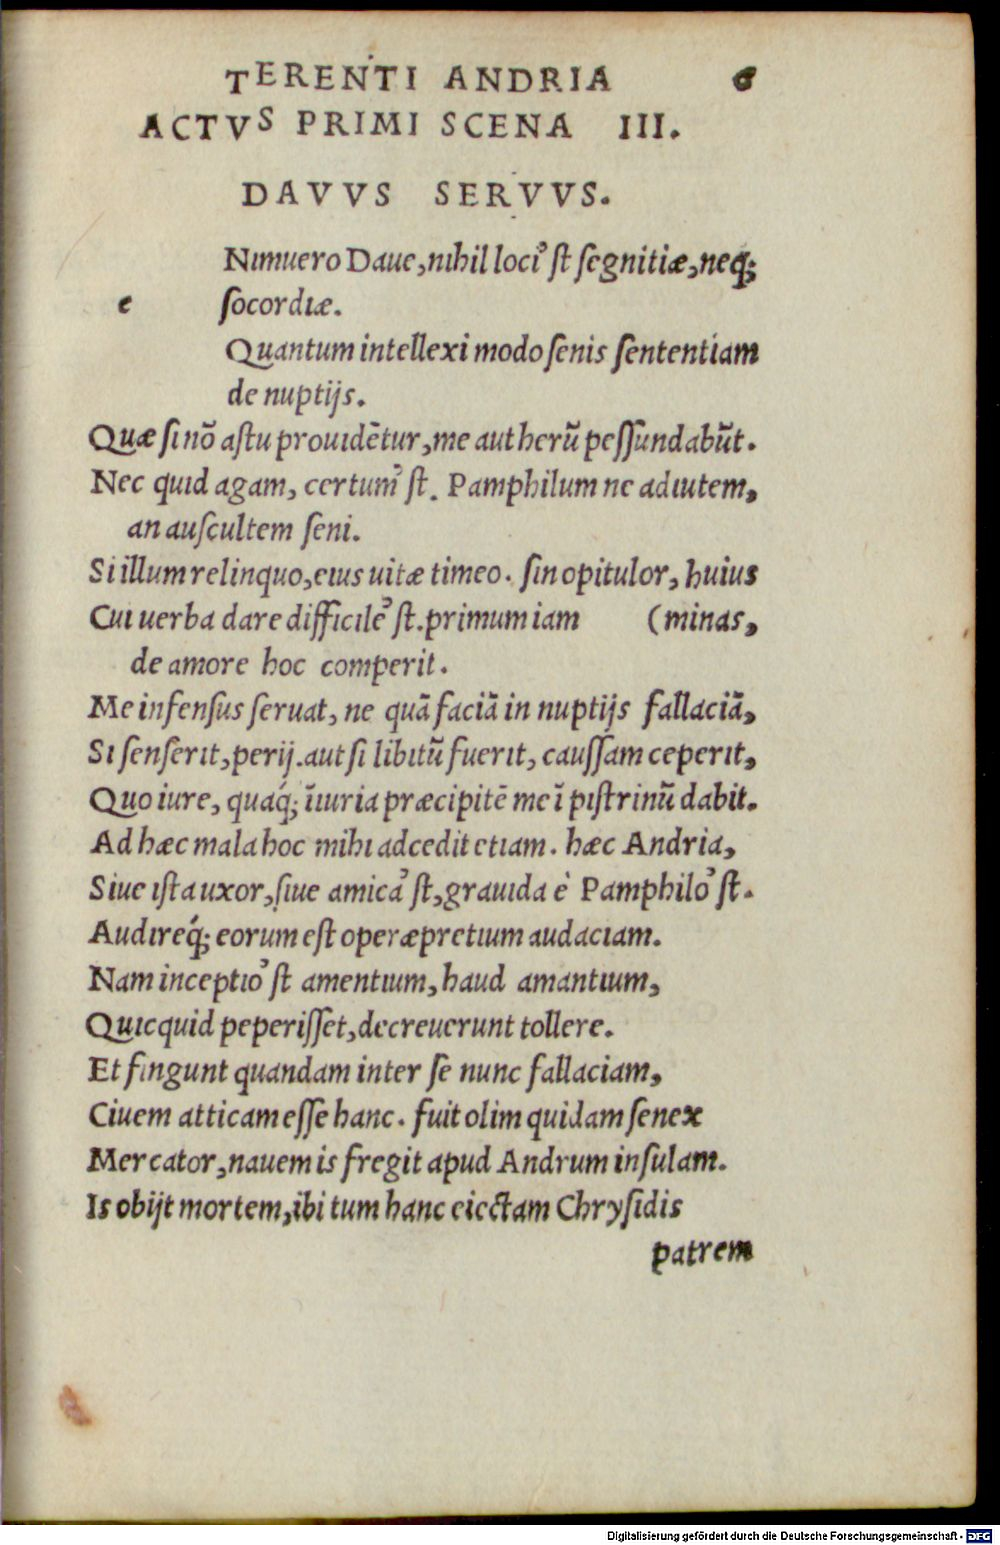 TERENTI ANDRIA 6
ACTVS PRIMI SCENA III.
DAVVS SERVVS.
Nimuero Daue, nihil loci'ſt ſegnitiæ, neq;
e ſocordiæ.
Quantum intellexi modo ſenis ſententiam
de nuptijs.
Quæ ſi nõ aſtu prouidẽtur, me aut herũ peſſundabũt.
Nec quid agam, certum'ſt. Pamphilum ne adiutem,
an auſcultem ſeni.
Si illum relinquo, eius uitæ timeo. ſin opitulor, huius
Cui uerba dare difficile'ſt. primum iam (minas,
de amore hoc comperit.
Me infenſus ſeruat, ne quã faciã in nuptijs fallaciã,
Si ſenſerit, perij. aut ſi libitũ fuerit, cauſſam ceperit,
Quo iure, quaq́; ĩiuria præcipitẽ me ĩ piſtrinũ dabit.
Ad hæc mala hoc mihi adcedit etiam. hæc Andria,
Siue iſta uxor, ſiue amica'ſt, grauida è Pamphilo'ſt.
Audireq́; eorum eſt operæpretium audaciam.
Nam inceptio'ſt amentium, haud amantium,
Quicquid peperiſſet, decreuerunt tollere.
Et fingunt quandam inter ſe nunc fallaciam,
Ciuem atticam eſſe hanc. fuit olim quidam ſenex
Mercator, nauem is fregit apud Andrum inſulam.
Is obijt mortem, ibi tum hanc eiectam Chryſidis
patrem
Digitalisierung gefördert durch die Deutsche Forschungsgemeinschaft - DFG